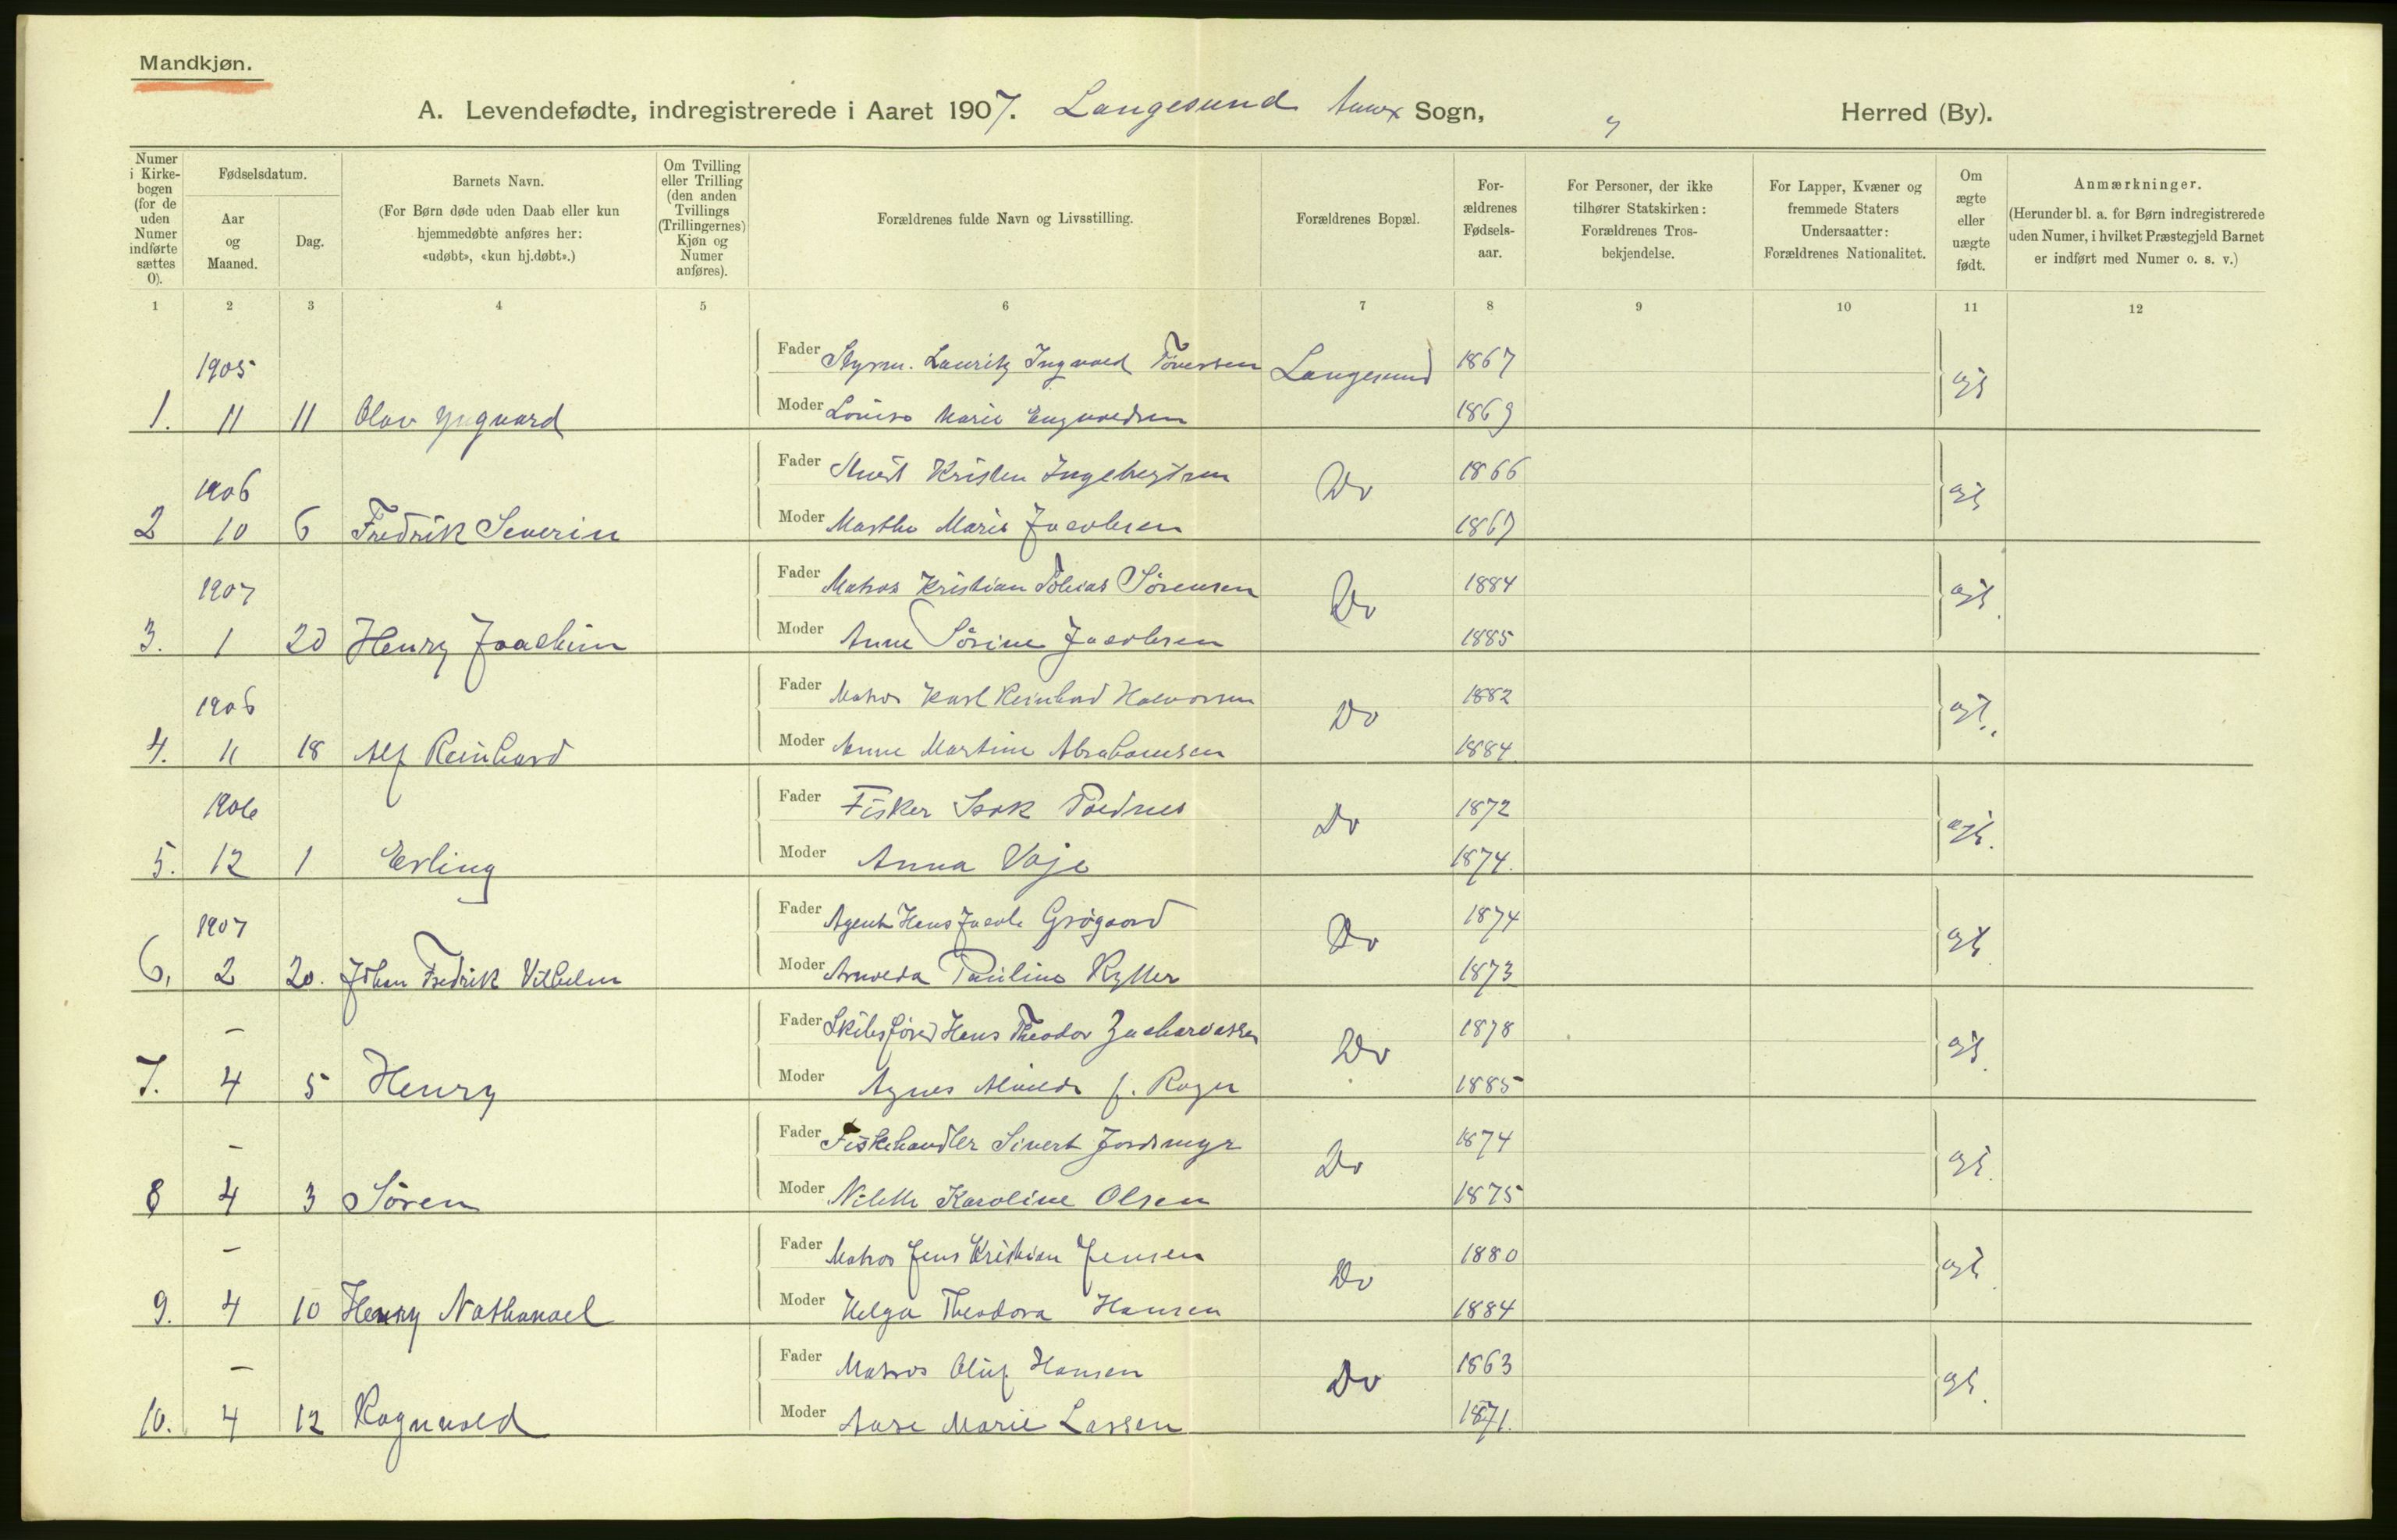 Mandkjøn.
A. Levendefødte, indregistrerede i Aaret 1907. Langesund Annex Sogn, Herred (By).
Numer i Kirke-bogen (for de uden Numer indførte sættes 0).
Fødselsdatum.
Aar og Maaned.
Dag.
Barnets Navn.
(For Børn døde uden Daab eller kun hjemmedøbte anføres her: «udøbt», «kun hj.døbt».)
Om Tvilling eller Trilling (den anden Tvillings (Trillingernes) Kjøn og Numer anføres).
Forældrenes fulde Navn og Livsstilling.
Forældrenes Bopæl.
For-ældrenes Fødsels-aar.
For Personer, der ikke tilhører Statskirken: Forældrenes Tros-bekjendelse.
For Lapper, Kvæner og fremmede Staters Undersaatter: Forældrenes Nationalitet.
Om ægte eller uægte født.
Anmærkninger.
(Herunder bl. a. for Børn indregistrerede uden Numer, i hvilket Præstegjeld Barnet er indført med Numer o. s. v.)
1 2 3 4 5 6 7 8 9 10 11 12
1905 Fader Styrm. Lauritz Ingvald Tønessen Langesund 1867
1. 11 11 Olav Yngvard Moder Lovise Marie Engvaldsen 1869 ægt
1906 Fader Kristen Ingebregtsen Do 1866
2 10 6 Fredrik Severin Moder Marthe Marie Jacobsen 1867 ægt
1907 Fader Matros Kristian Tobias Sörensen Do 1884
3. 1 20 Henry Joachim Moder Anne Sörine Jacobsen 1885 ægt.
1906 Fader Matros Karl Reinhard Halvorsen Do 1882
4. 11 18 Alf Reinhard Moder Anne Martine Abrahamsen 1884. ægt.
1906 Fader Fisker Isak Do 1872
5. 12 1 Erling Moder Anna Vaje 1874. ægt.
1907 Fader Agent Hans Jacob Grögaard Do 1874
6. 2 20. Johan Fredrik Vilhelm Moder Pauline 1873 ægt.
- Fader Skibsfører Hans Theodor Zachariassen Do 1878
7. 4 5 Henry Moder Agnes f. 1885 ægt.
- Fader Fiskehandler Sivert Jordmyr Do 1874
8 4 3 Sören Moder Karoline Olsen 1875 ægt.
- Fader Matros Jens Kristian Jensen Do 1880
9. 4 10 Henry Nathanael Moder Helga Theodora Hansen 1884 ægt.
- Fader Matros Oluf Hansen Do 1863
10. 4 12 Ragnvald Moder Marie Lassen 1871. ægt.